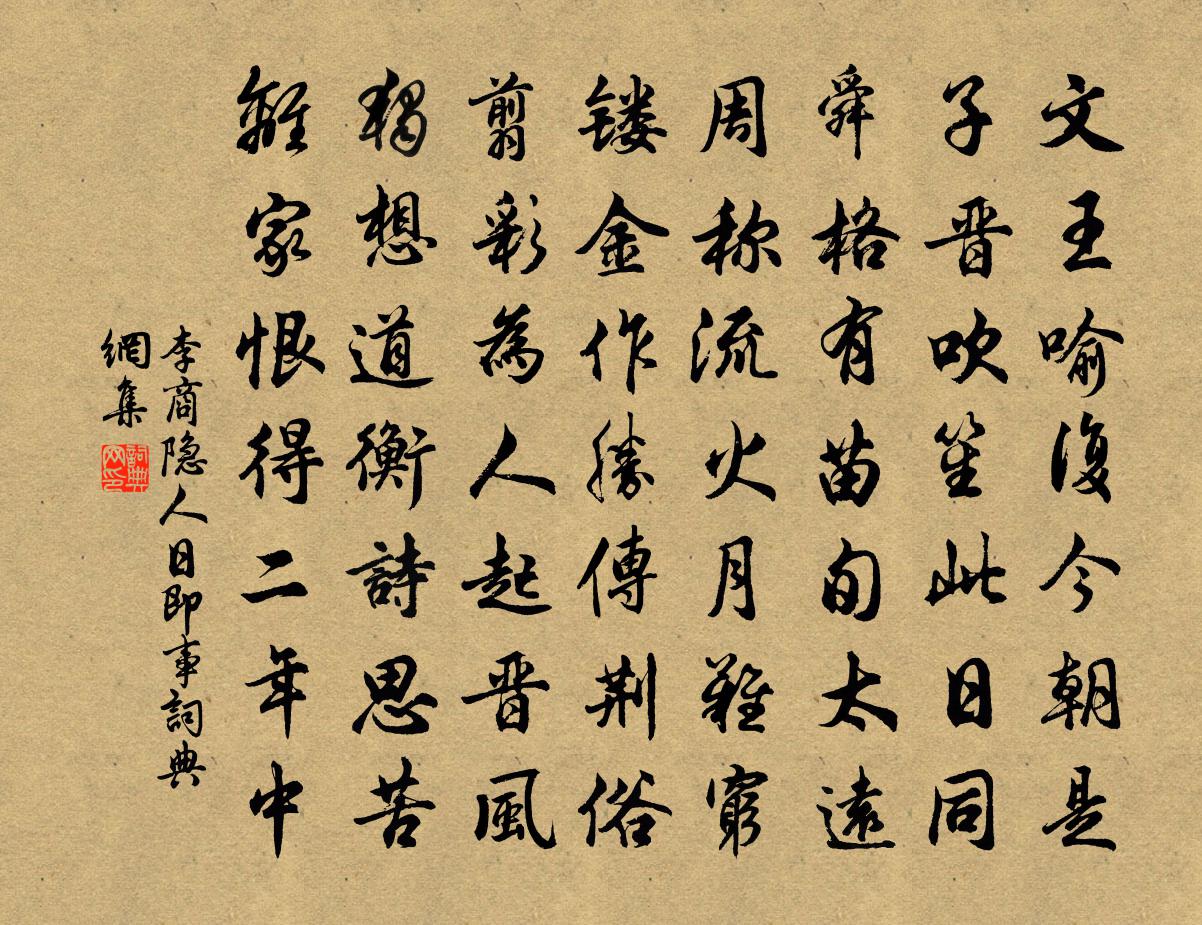 文王喻復今朝是
子晋吹笙此日同
舜格有苗旬太遠
周称流火月難窮
镂金作勝傳荆俗
翦彩為人起晋風
独想道衡詩思苦
離家恨得二年中
李商隐人日即事詞典
網集
詞典
网印